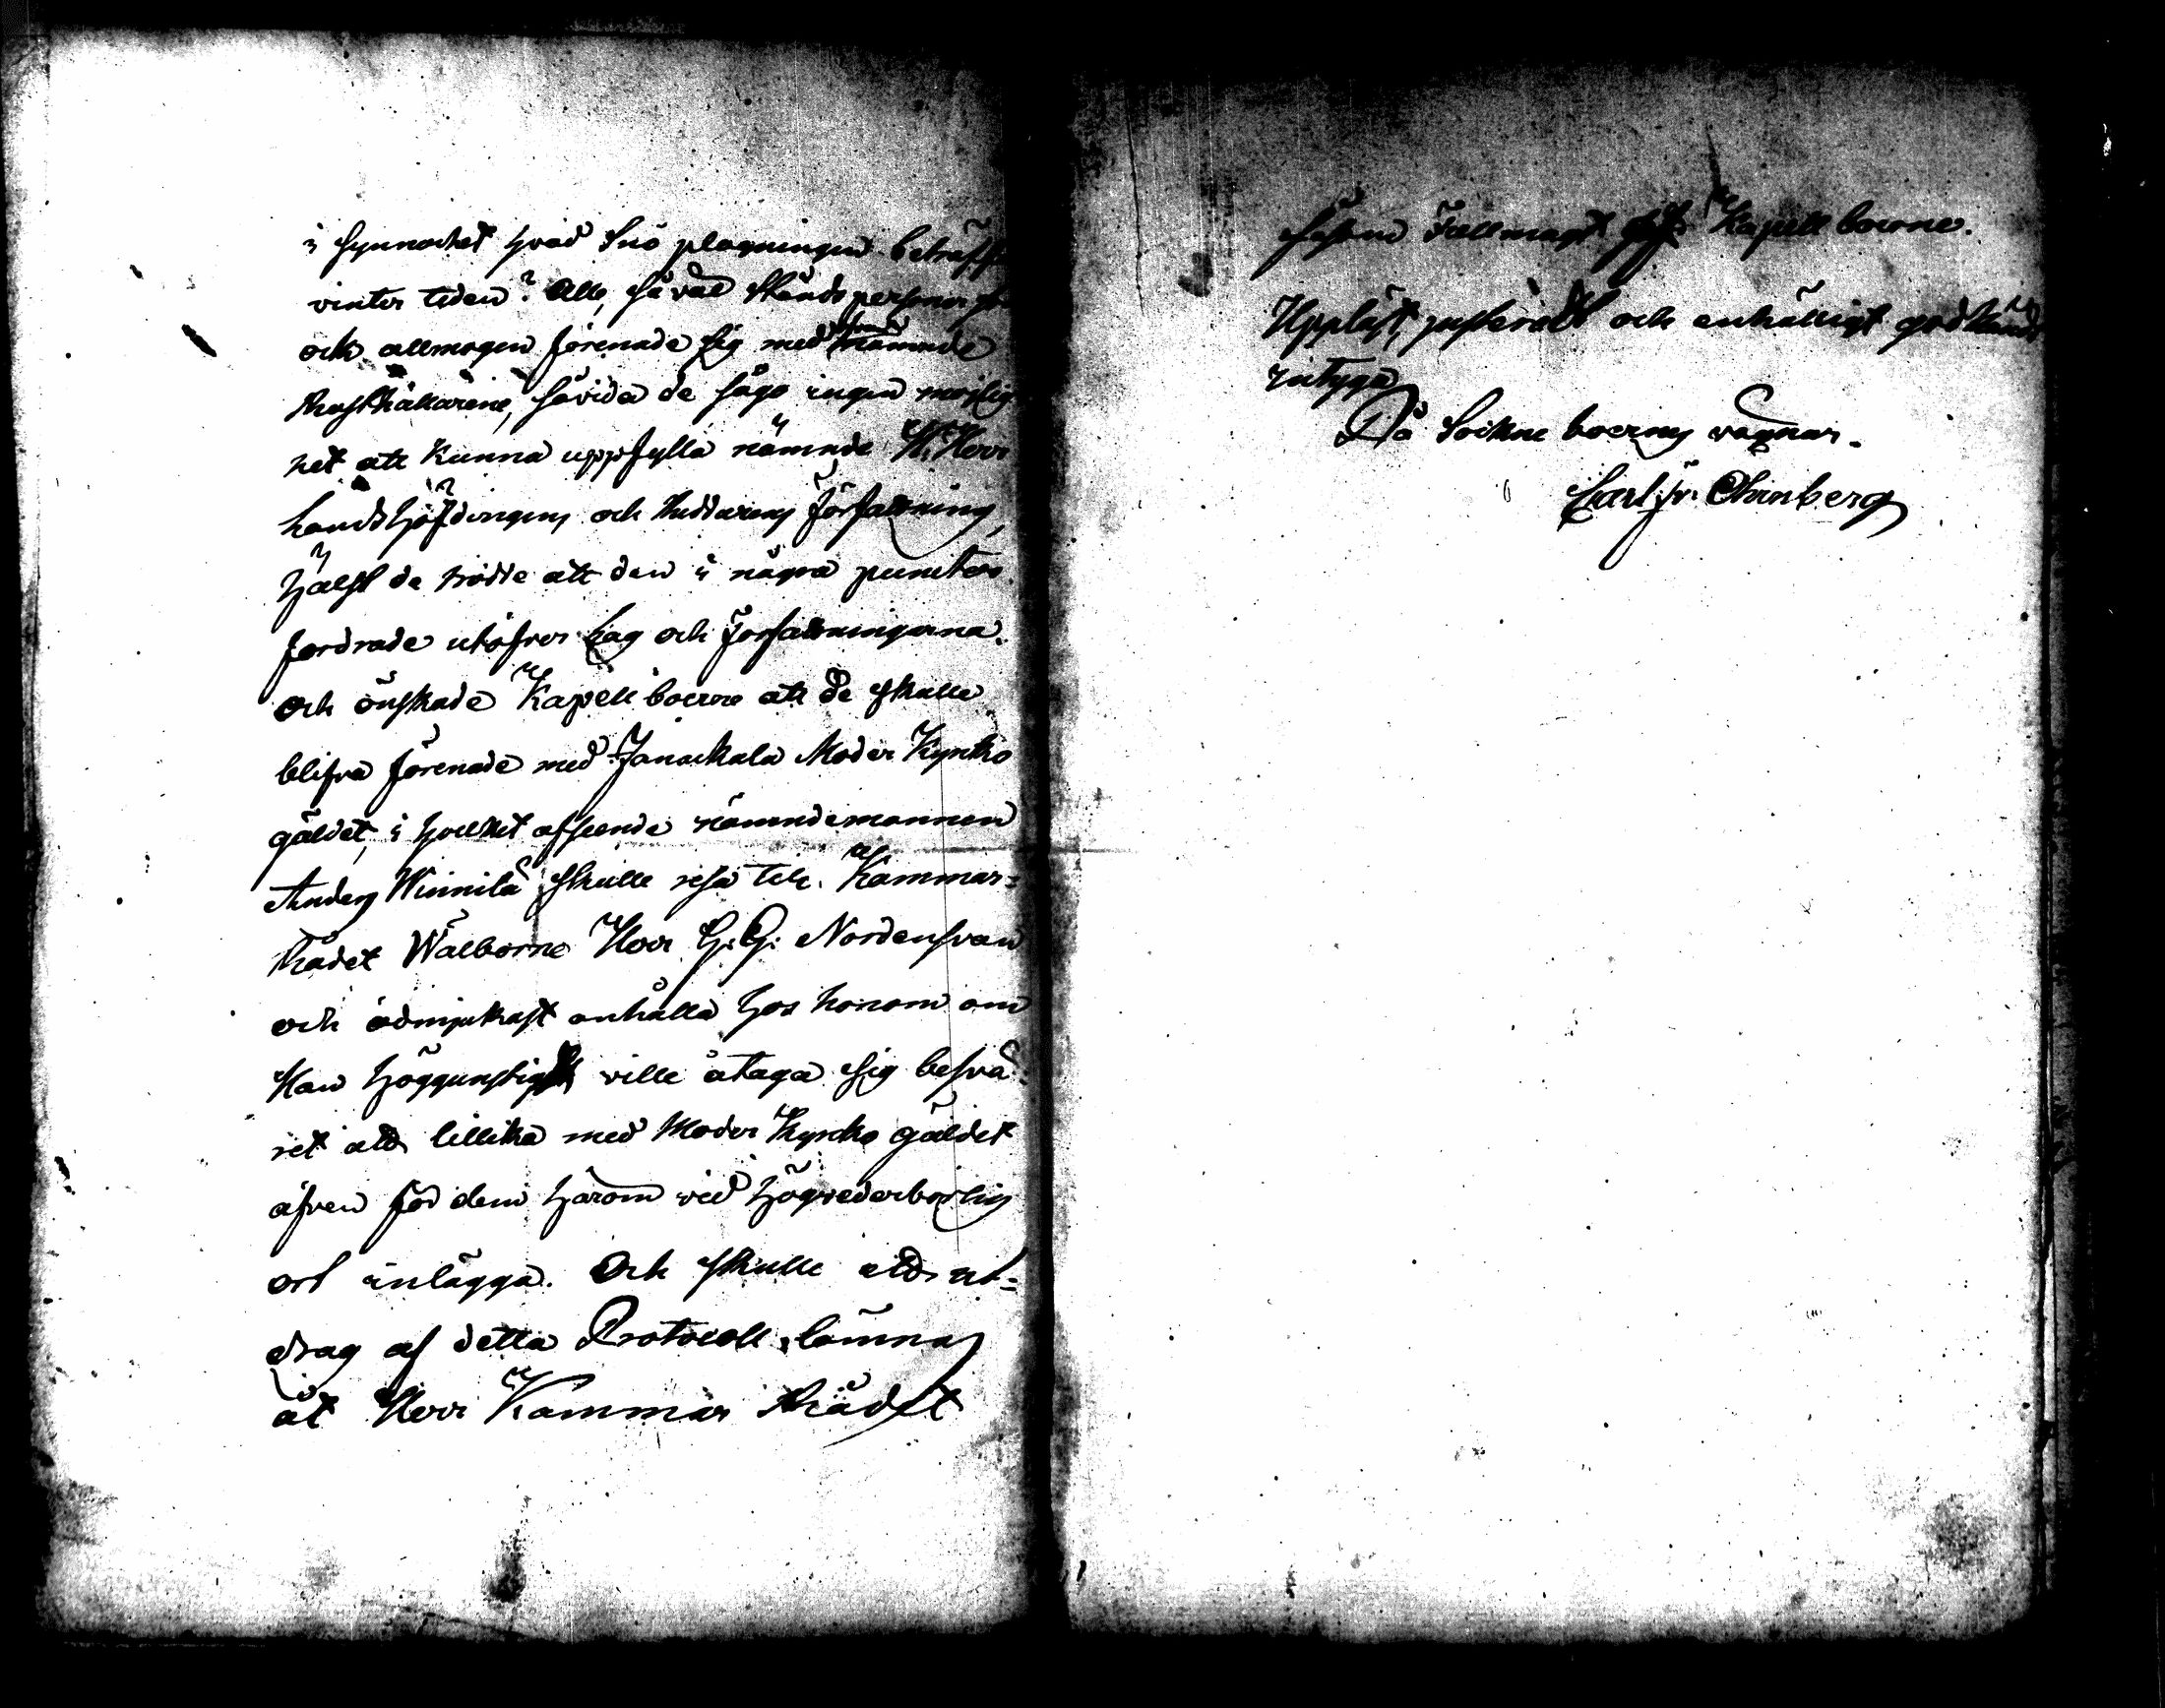 i synnerhet hvad Snö plogningen beträffa
vinter tiden? Alle, så väl Ståndspersoner
och allmogen förenade sig med nämnde
Rusthållarene, såvida de sågo ingen möjlig
het att kunna uppfylla nämnde H. Herr
Landshöfdingens och Riddarens författning,
hälst de trodde att den i några puncter
fordrade utöfver Lag och författningarna.
Och önskade Kapellboerne att de skulle
blifva förenade med Janackala Moder Kyrko
gäldet, i hvilket afseende nämndemannen
Anders Winnilä skulle resa till Kammar=
Rådet Wälborne Herr G: G: Nordensvan
och ödmjukast anhålla hos honom om
Han höggunstigst ville åtaga sig besvä=
ret att tillika med Moder Kyrko gäldet
äfven för dem härom vid högvederbörlig
ort inlägga. Och skulle ett ut=
drag af detta Protocoll lämnas
åt Herr Kammar Rådet
såsom Fullmagt Kapellboerne.
Uppläst, justeradt och enhälligt godkändt
intyga
På Sockne boernes vägnar.
Carl Fr: Ehrnberg